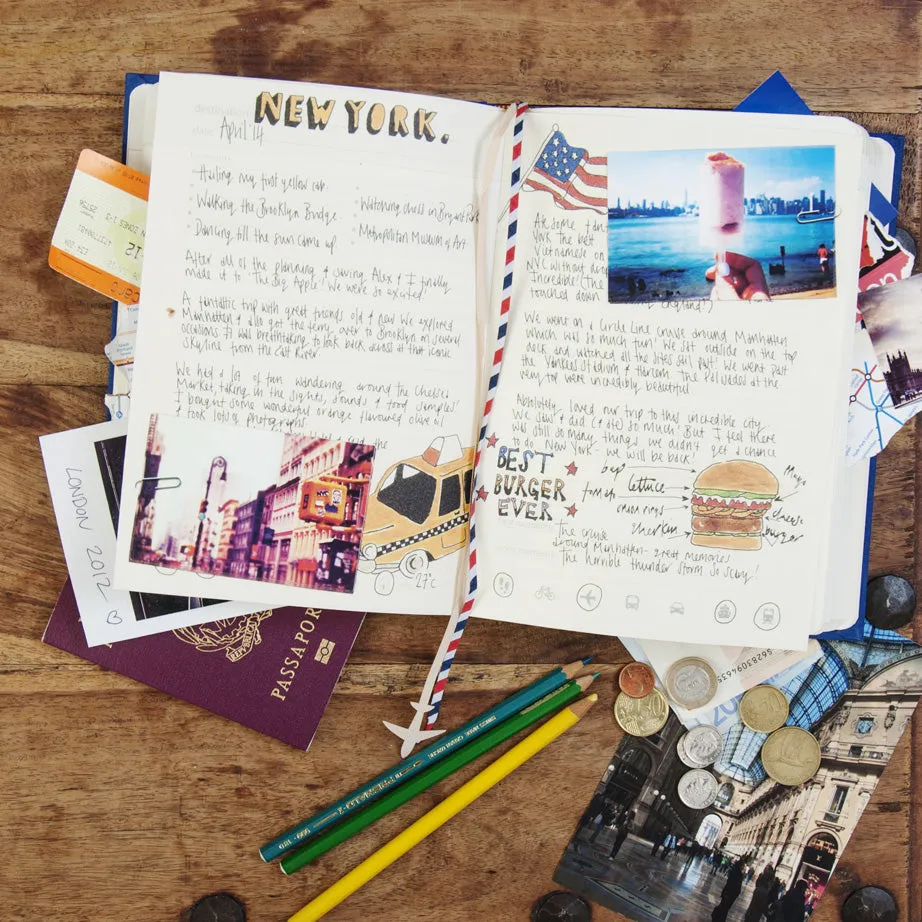 NEW YORK.
April '14
Hailing my first yellow cab
Walking the Brooklyn Bridge
Dancing till the sun came up
Watching chess in Bryant Park
Metropolitan Museum of Art
After all of the planning & saving, Alex & I finally
made it to 'The Big Apple'! We were so excited!
A fantastic trip with great friends old & new. We explored
Manhattan & also got the ferry over to Brooklyn on several
occasions. It was breathtaking to look back across at that iconic
skyline from the East River
We had a lot of fun wandering around the Chelsea
Market taking in the sights, sounds & food samples!
I bought some wonderful orange flavoured olive oil
& took lots of photographs
27°c
At some
York the best
Vietnamese
NYC without
Incredible! (The
touched down
England?)
We went on a Circle Line cruise around Manhattan
which was so much fun! We sat outside on the top
deck and watched all the sites sail past. We went past
the Yankees Stadium & Harlem. The Palisades at the
very top were incredibly beautiful
Absolutely loved our trip to this incredible city.
We saw & did (& ate) so much! But I feel there
was still so many things we didn't get a chance
to do New York - we will be back!
BEST
BURGER
EVER
bap
lettuce
tomato
onion rings
gherkin
Mayo
cheese
burger
The cruise
around Manhattan - great memories
The horrible thunder storm so scary!
LONDON 2012
PASSAPOR
REPUBBLICA
12